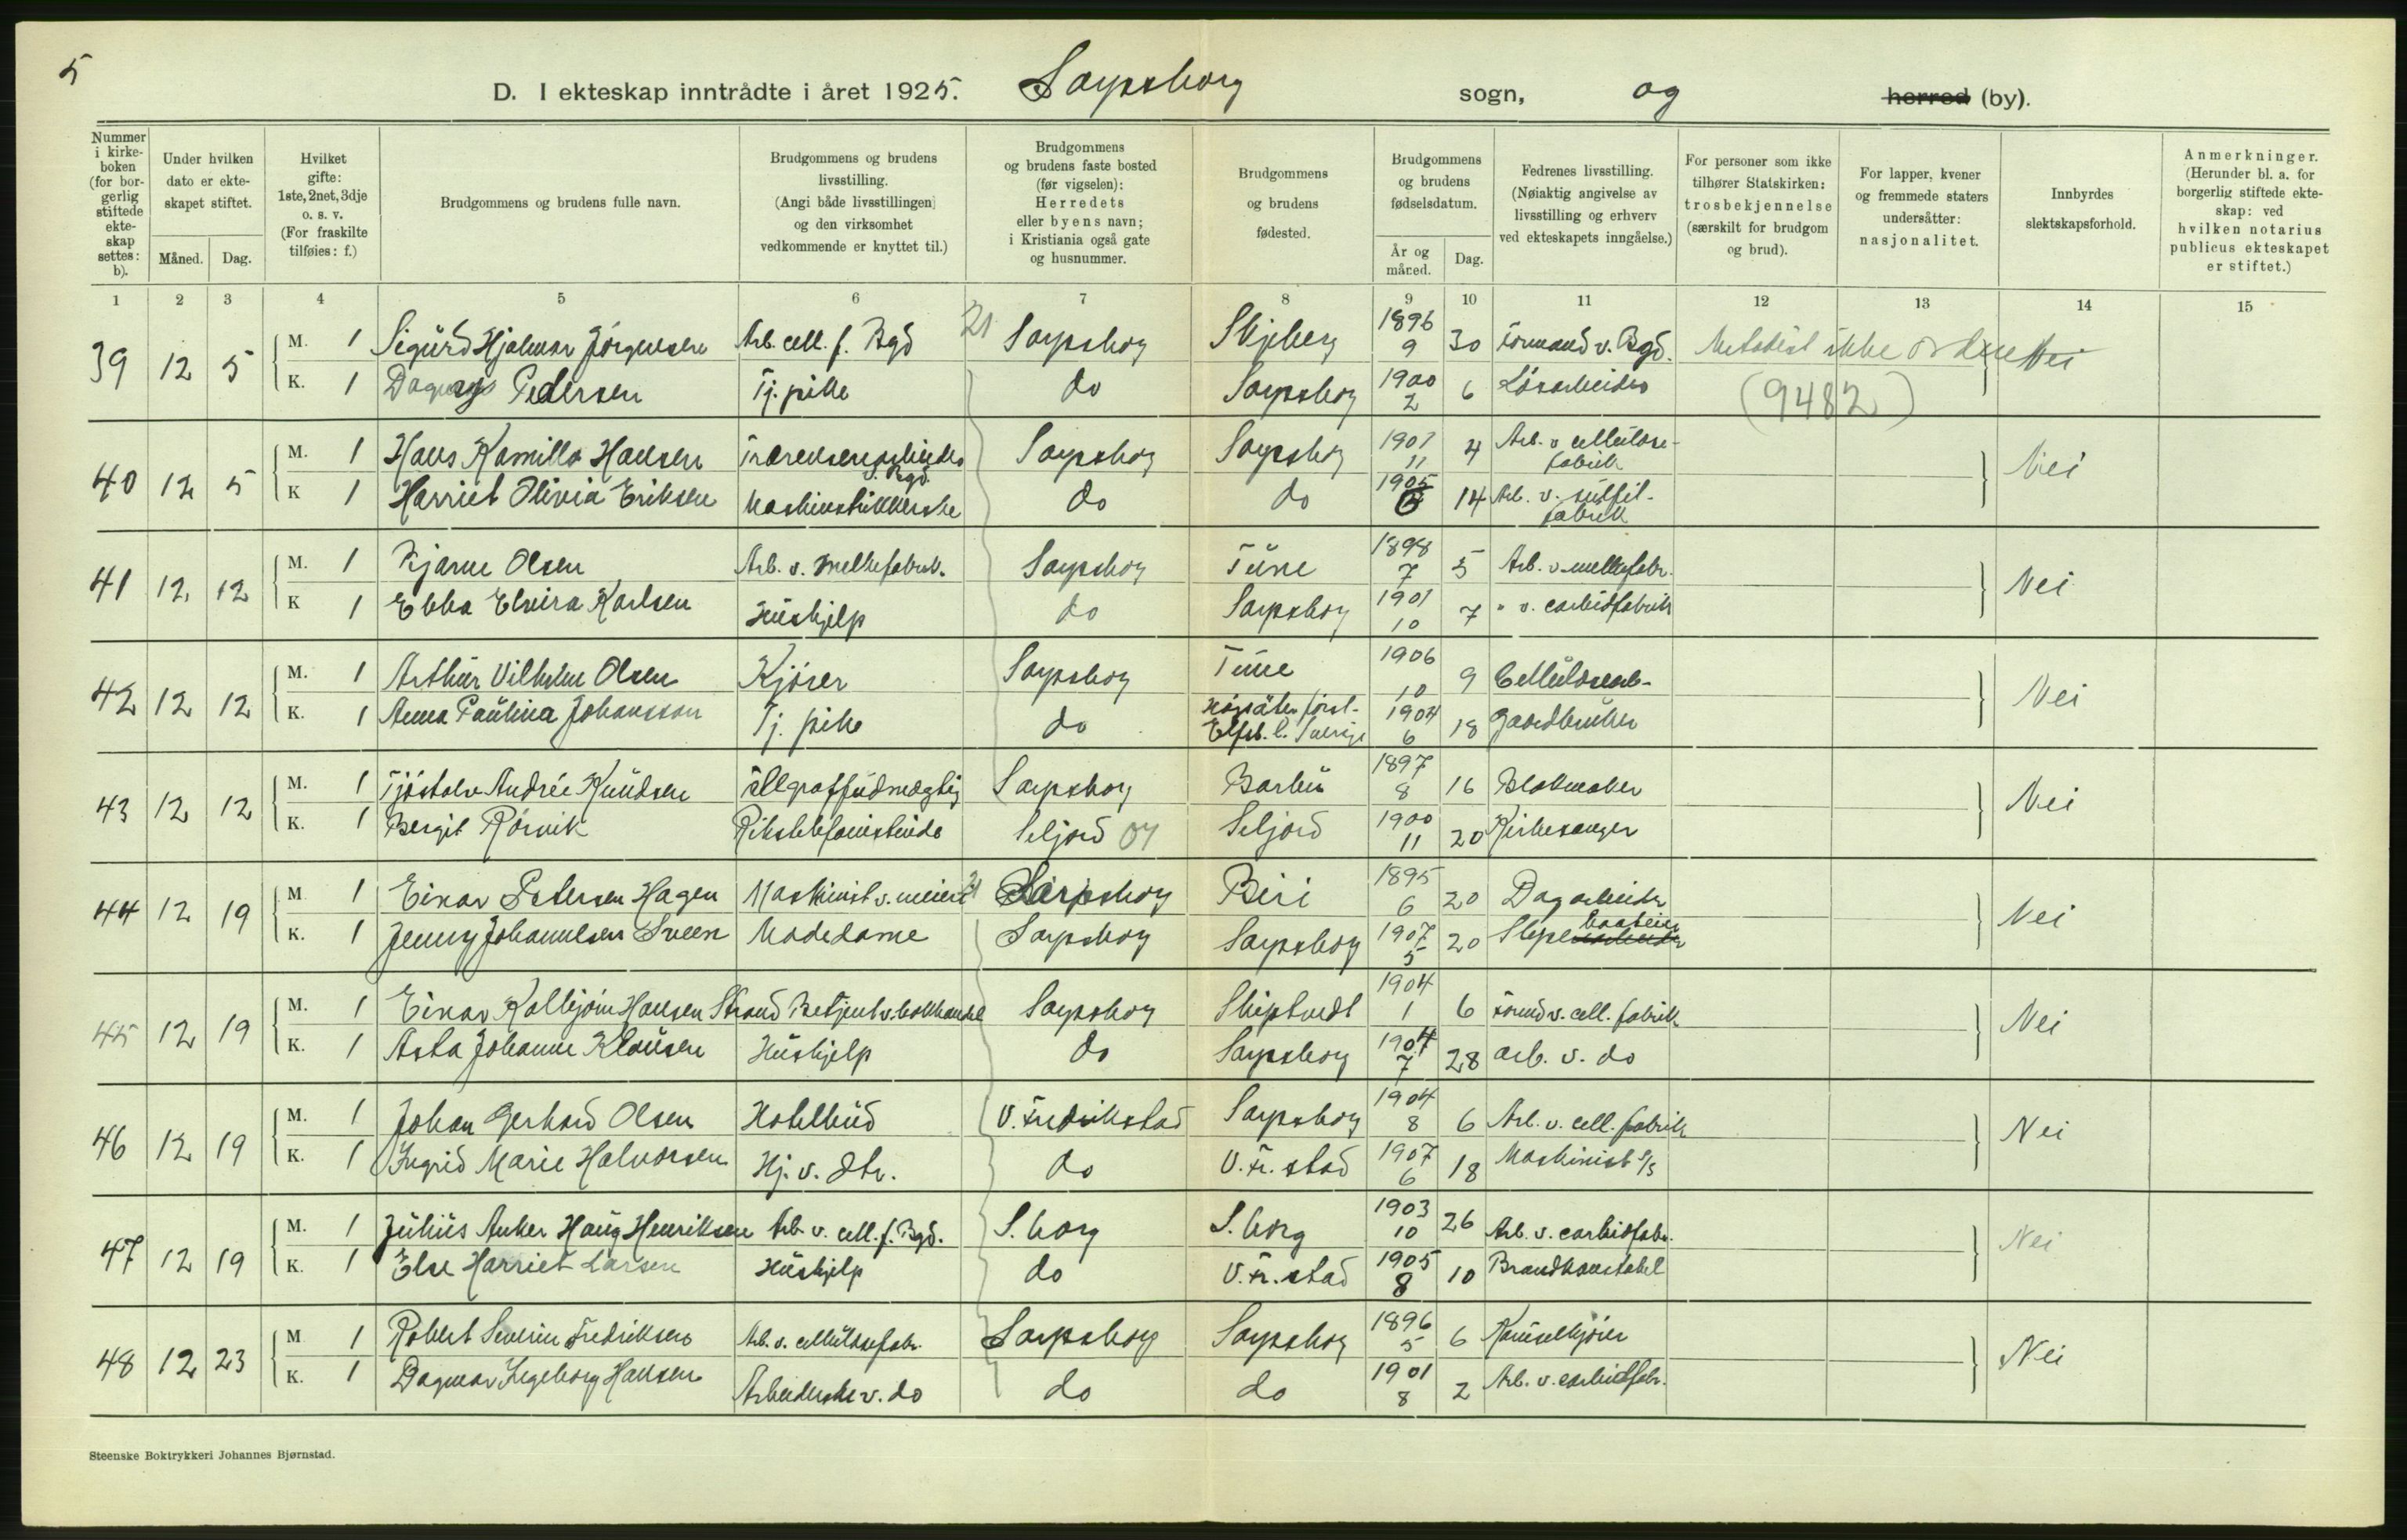 5
D. I ekteskap inntrådte i året 1925. Sarpsborg sogn, og herred (by).
Nummer i kirkeboken (for borgerlig stiftede ekteskap settes: b).
Under hvilken dato er ekteskapet stiftet.
Måned. Dag.
Hvilket gifte: 1ste, 2net, 3dje o. s. v. (For fraskilte tilføies: f.)
Brudgommens og brudens fulle navn.
Brudgommens og brudens livsstilling. (Angi både livsstillingen og den virksomhet vedkommende er knyttet til.)
Brudgommens og brudens faste bosted (før vigselen): Herredets eller byens navn; i Kristiania også gate og husnummer.
Brudgommens og brudens fødested.
Brudgommens og brudens fødselsdatum.
År og måned. Dag.
Fedrenes livsstilling. (Nøiaktig angivelse av livsstilling og erhverv ved ekteskapets inngåelse.)
For personer som ikke tilhører Statskirken: trosbekjennelse (særskilt for brudgom og brud).
For lapper, kvener og fremmede staters undersåtter: nasjonalitet.
Innbyrdes slektskapsforhold.
Anmerkninger. (Herunder bl. a. for borgerlig stiftede ekteskap: ved hvilken notarius publicus ekteskapet er stiftet.)
1 2 3 4 5 6 7 8 9 10 11 12 13 14 15
39 12 5 M. 1 Sigurd Hjalmar Jørgensen Arb. cell. f. Bgd 21 Sarpsborg Skjeberg 1896 9 30 Formand v. Bgd. Metodist ikke Nei
K. 1 Dagny Pedersen Tj. pike do Sarpsborg 1900 2 6 Løsarbeider (9482)
40 12 5 M. 1 Hans Kamillo Hansen Sarpsborg Sarpsborg 1901 11 4 Arb. v cellulosefabrik Nei
K 1 Harriet Olivia Eriksen Maskinstrikkerske do do 1905 14 Arb. v. sulfitfabrik
41 12 12 M. 1 Bjarne Olsen Arb. v. melkefabrik. Sarpsborg Tune 1898 7 5 Arb. v. melkefabr. Nei
K 1 Ebba Elvira Karlsen Hushjelp do Sarpsborg 1901 10 7 " v. carbidfabrik
42 12 12 M. 1 Arthur Vilhelm Olsen Kjører Sarpsborg Tune 1906 10 9 Cellulosearb- Nei
K. 1 Anna Paulina Johansson Tj. pike do Elfsb. l. Sverige 1904 6 18 Gaardbruker
43 12 12 M. 1 Tjøstolv Andrée Knudsen Tellgraffuldmægtig Sarpsborg Barbu 1897 8 16 Blokmaker Nei
K. 1 Bergit Rørvik Rikstelefonistinde Seljord 07 Seljord 1900 11 20 Kirkesanger
44 12 19 M 1 Einar Petersen Hagen Maskinist v. meieri 21 Sarpsborg Biri 1895 6 20 Dagarbeider Nei
K. 1 Jenny Johannesen Sveen Modedame Sarpsborg Sarpsborg 1907 5 20
45 12 19 M. 1 Einar Kolbjørn Hansen Strand Betjent v. Sarpsborg Skiptvedt 1904 1 6 Formd v. cell. fabrik Nei
K. 1 Asta Johanne Klausen Hushjelp do Sarpsborg 1904 7 28 arb. v. do
46 12 19 M. 1 Johan Gerhard Olsen Hotelbud V. Fredrikstad Sarpsborg 1904 8 6 Arb. v. cell. fabrik Nei
K. 1 Ingrid Marie Halvorsen Hj. v. do V. Fr. stad 1907 6 18 Maskinist S/S
47 12 19 M. 1 Julius Anker Haug Henriksen Arb. v. cell. f. Bgd. S. borg S. borg 1903 10 26 Arb. v. carbidfabr. Nei
K. 1 Else Harriet Larsen Hushjelp do V. Fr. stad 1905 8 10 Brandkonstabel
48 12 23 M 1 Robert Severin Fredriksen Arb. v. cellulosefabr. Sarpsborg Sarpsborg 1896 5 6 Nei
K. 1 Dagmar Ingeborg Hansen Arbeiderske v. do do do 1901 8 2 Arb. v. carbidfabr.
Steenske Boktrykkeri Johannes Bjørnstad.